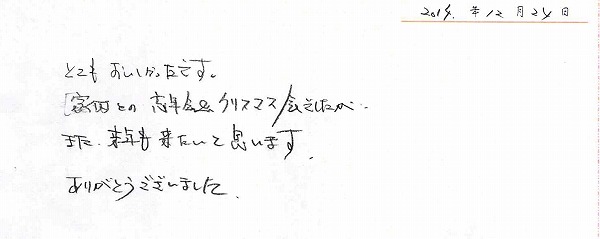 2014. 年 12 月 24 日
とても おいしかったです。
家内との 忘年会& クリスマス/会でしたが..
また、来年も 来たいと 思います.
ありがとうございました.